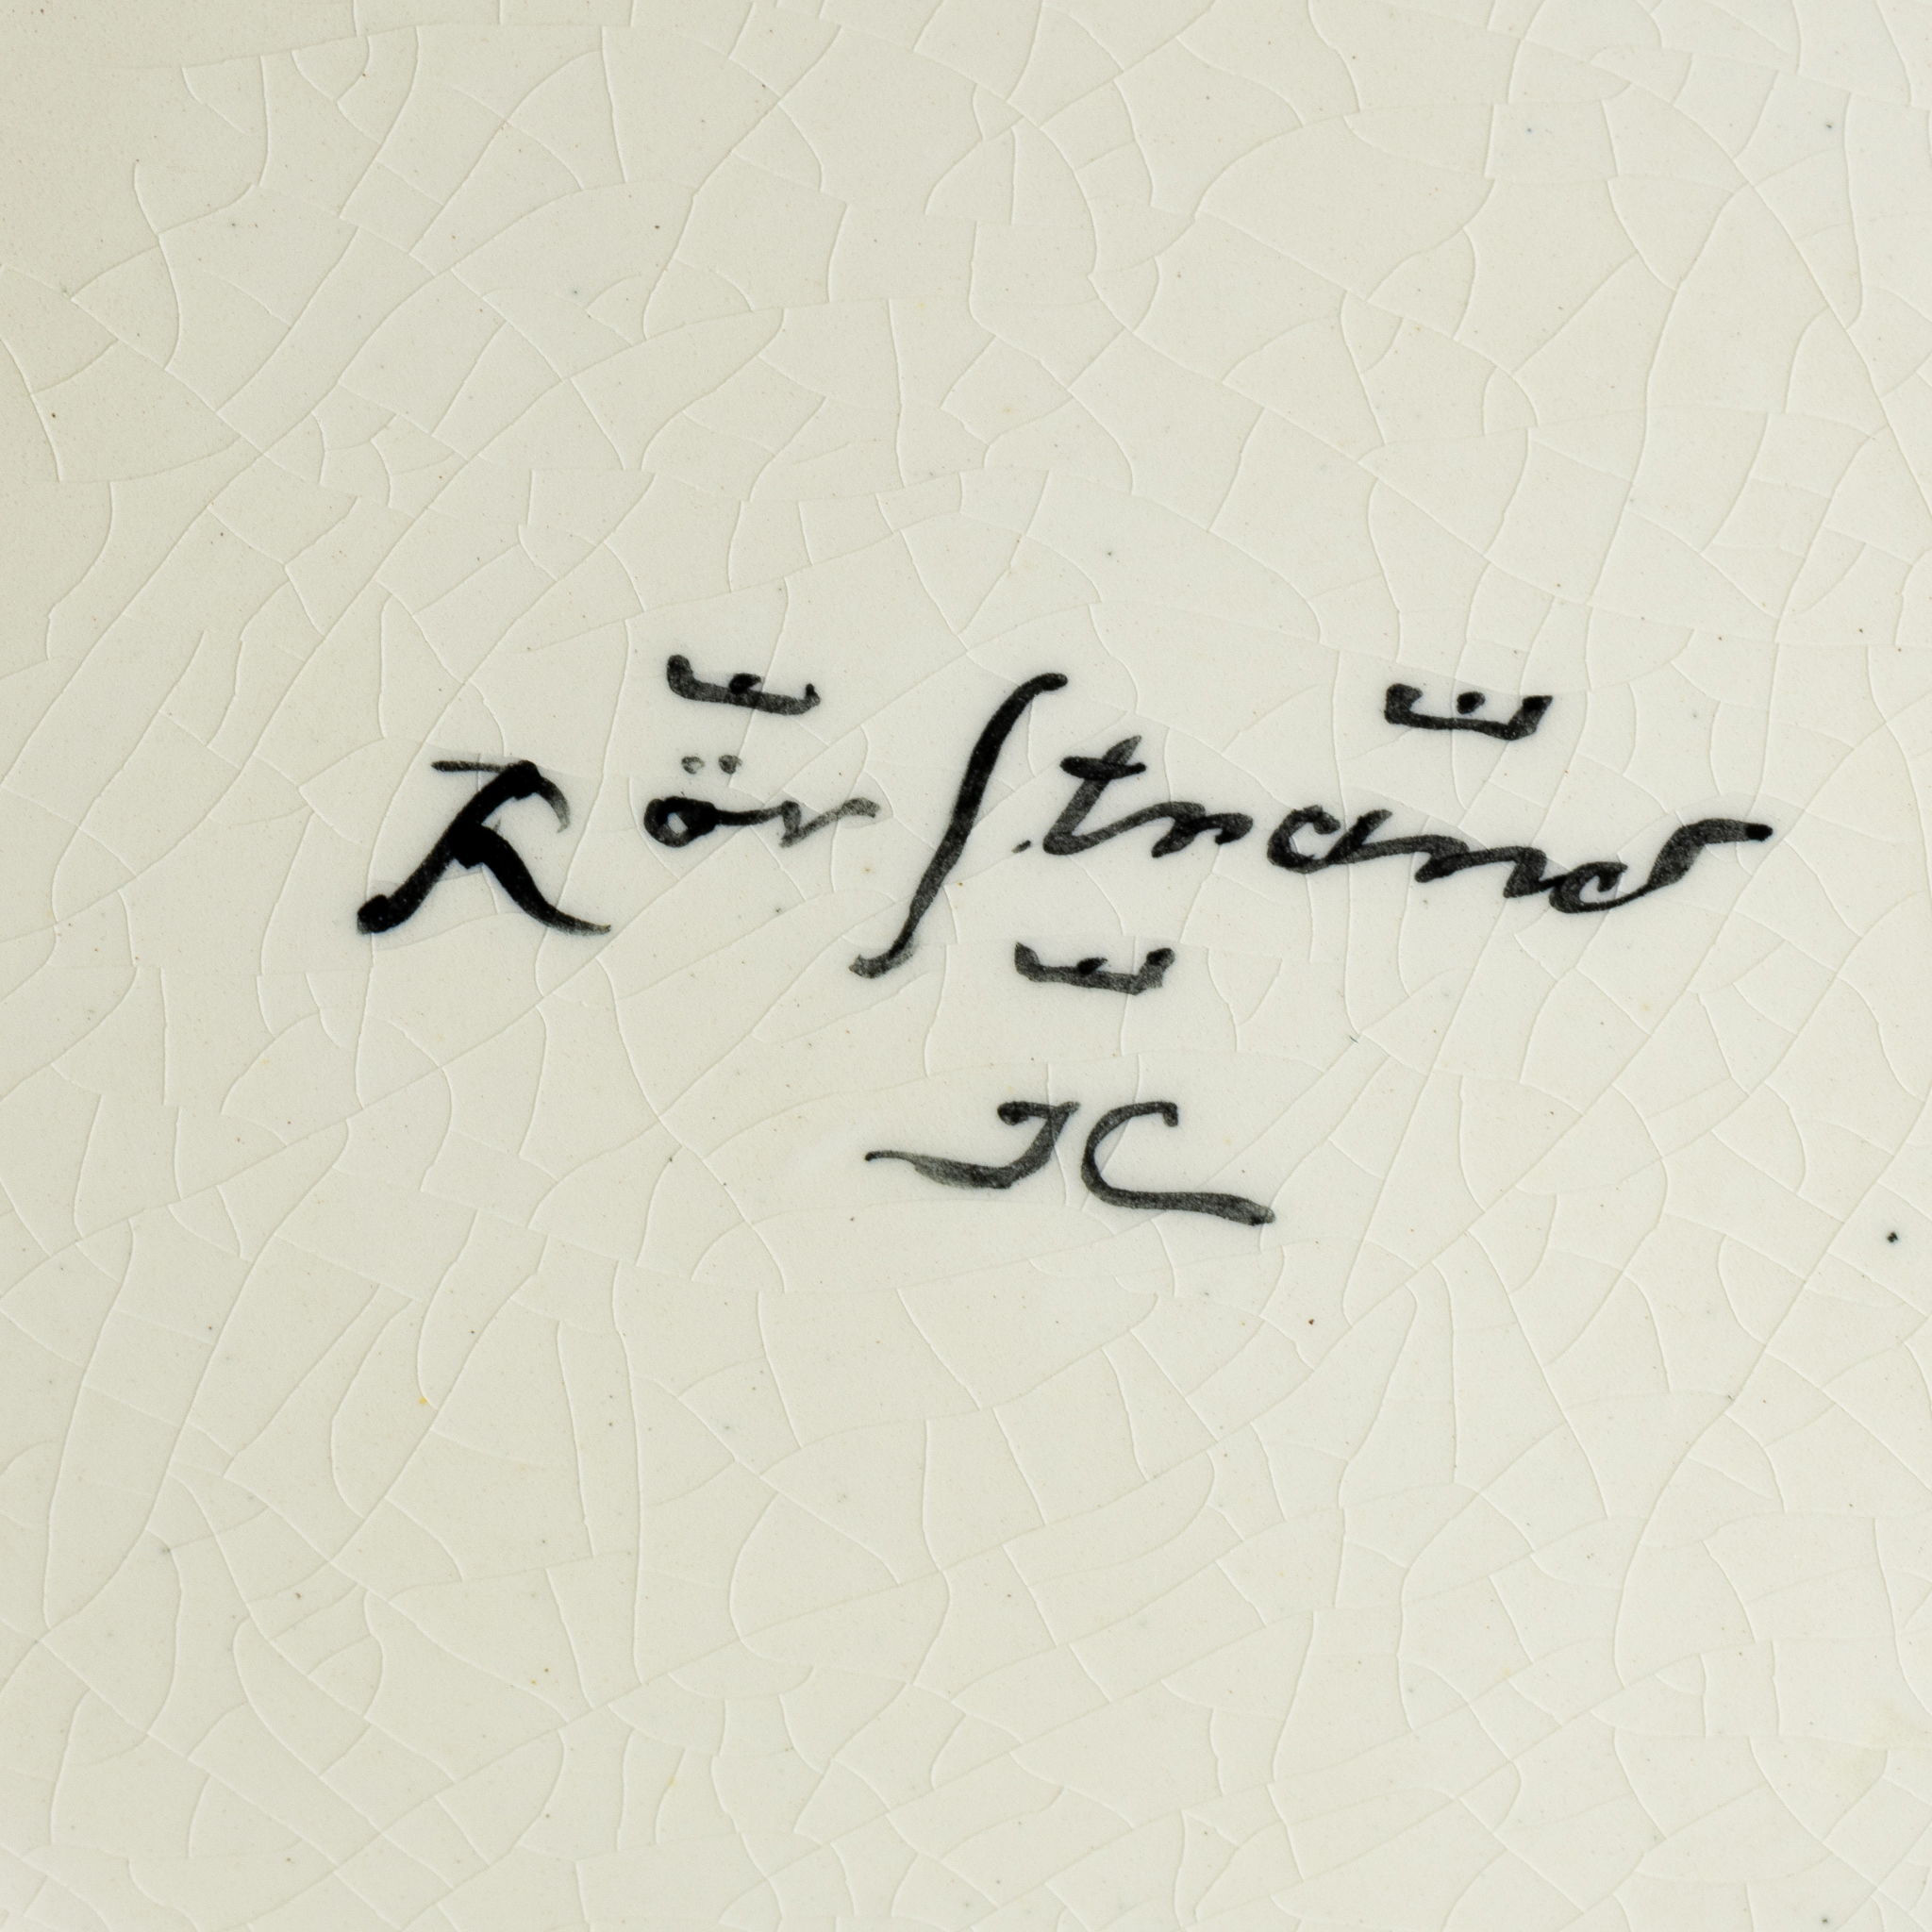 Rörstrand
IC